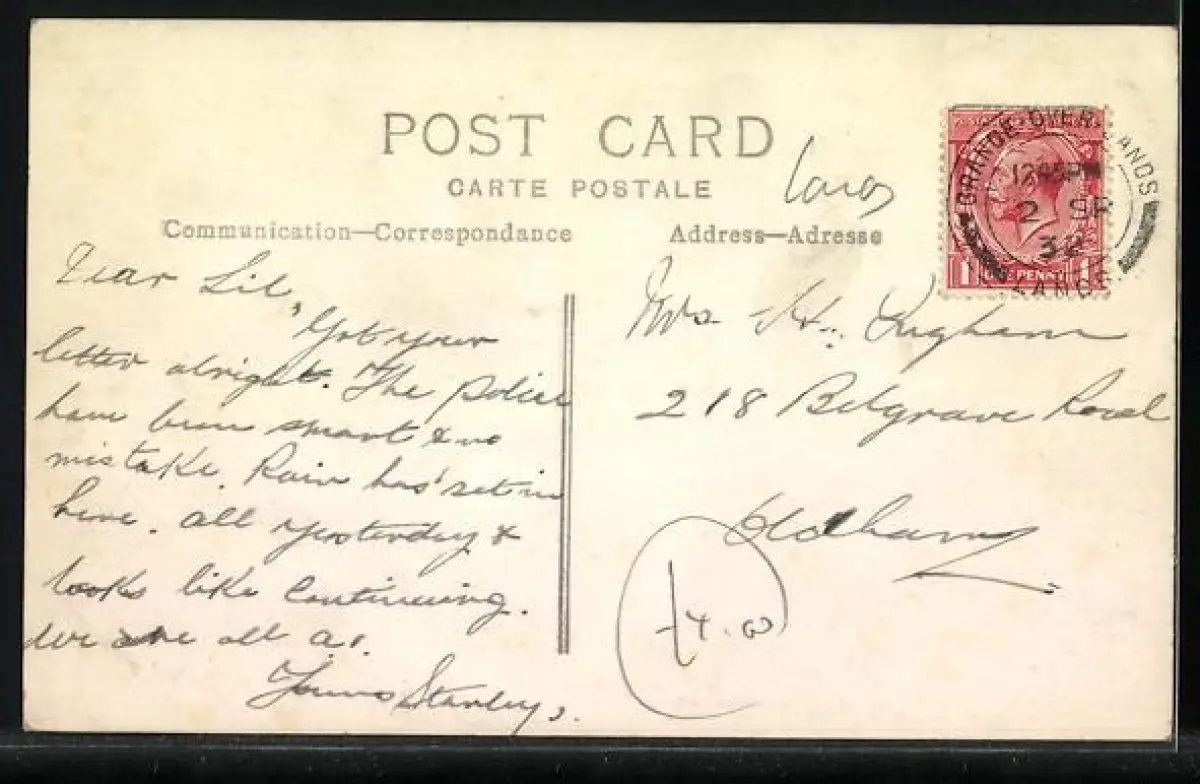 POST CARD
CARTE POSTALE
Communication—Correspondance
Address—Adresse
GRANGE-OVER-SANDS
12 45 PM
2 SP
32
LANCS
1 ONE PENNY 1
Dear Lil,
Got your
letter alright. The police
have been smart & no
mistake. Rain has set in
here. All yesterday &
looks like continuing.
We are all A1.
Yours Stanley.
Mrs. H. Ingham
218 Belgrave Road
Oldham
£4.00